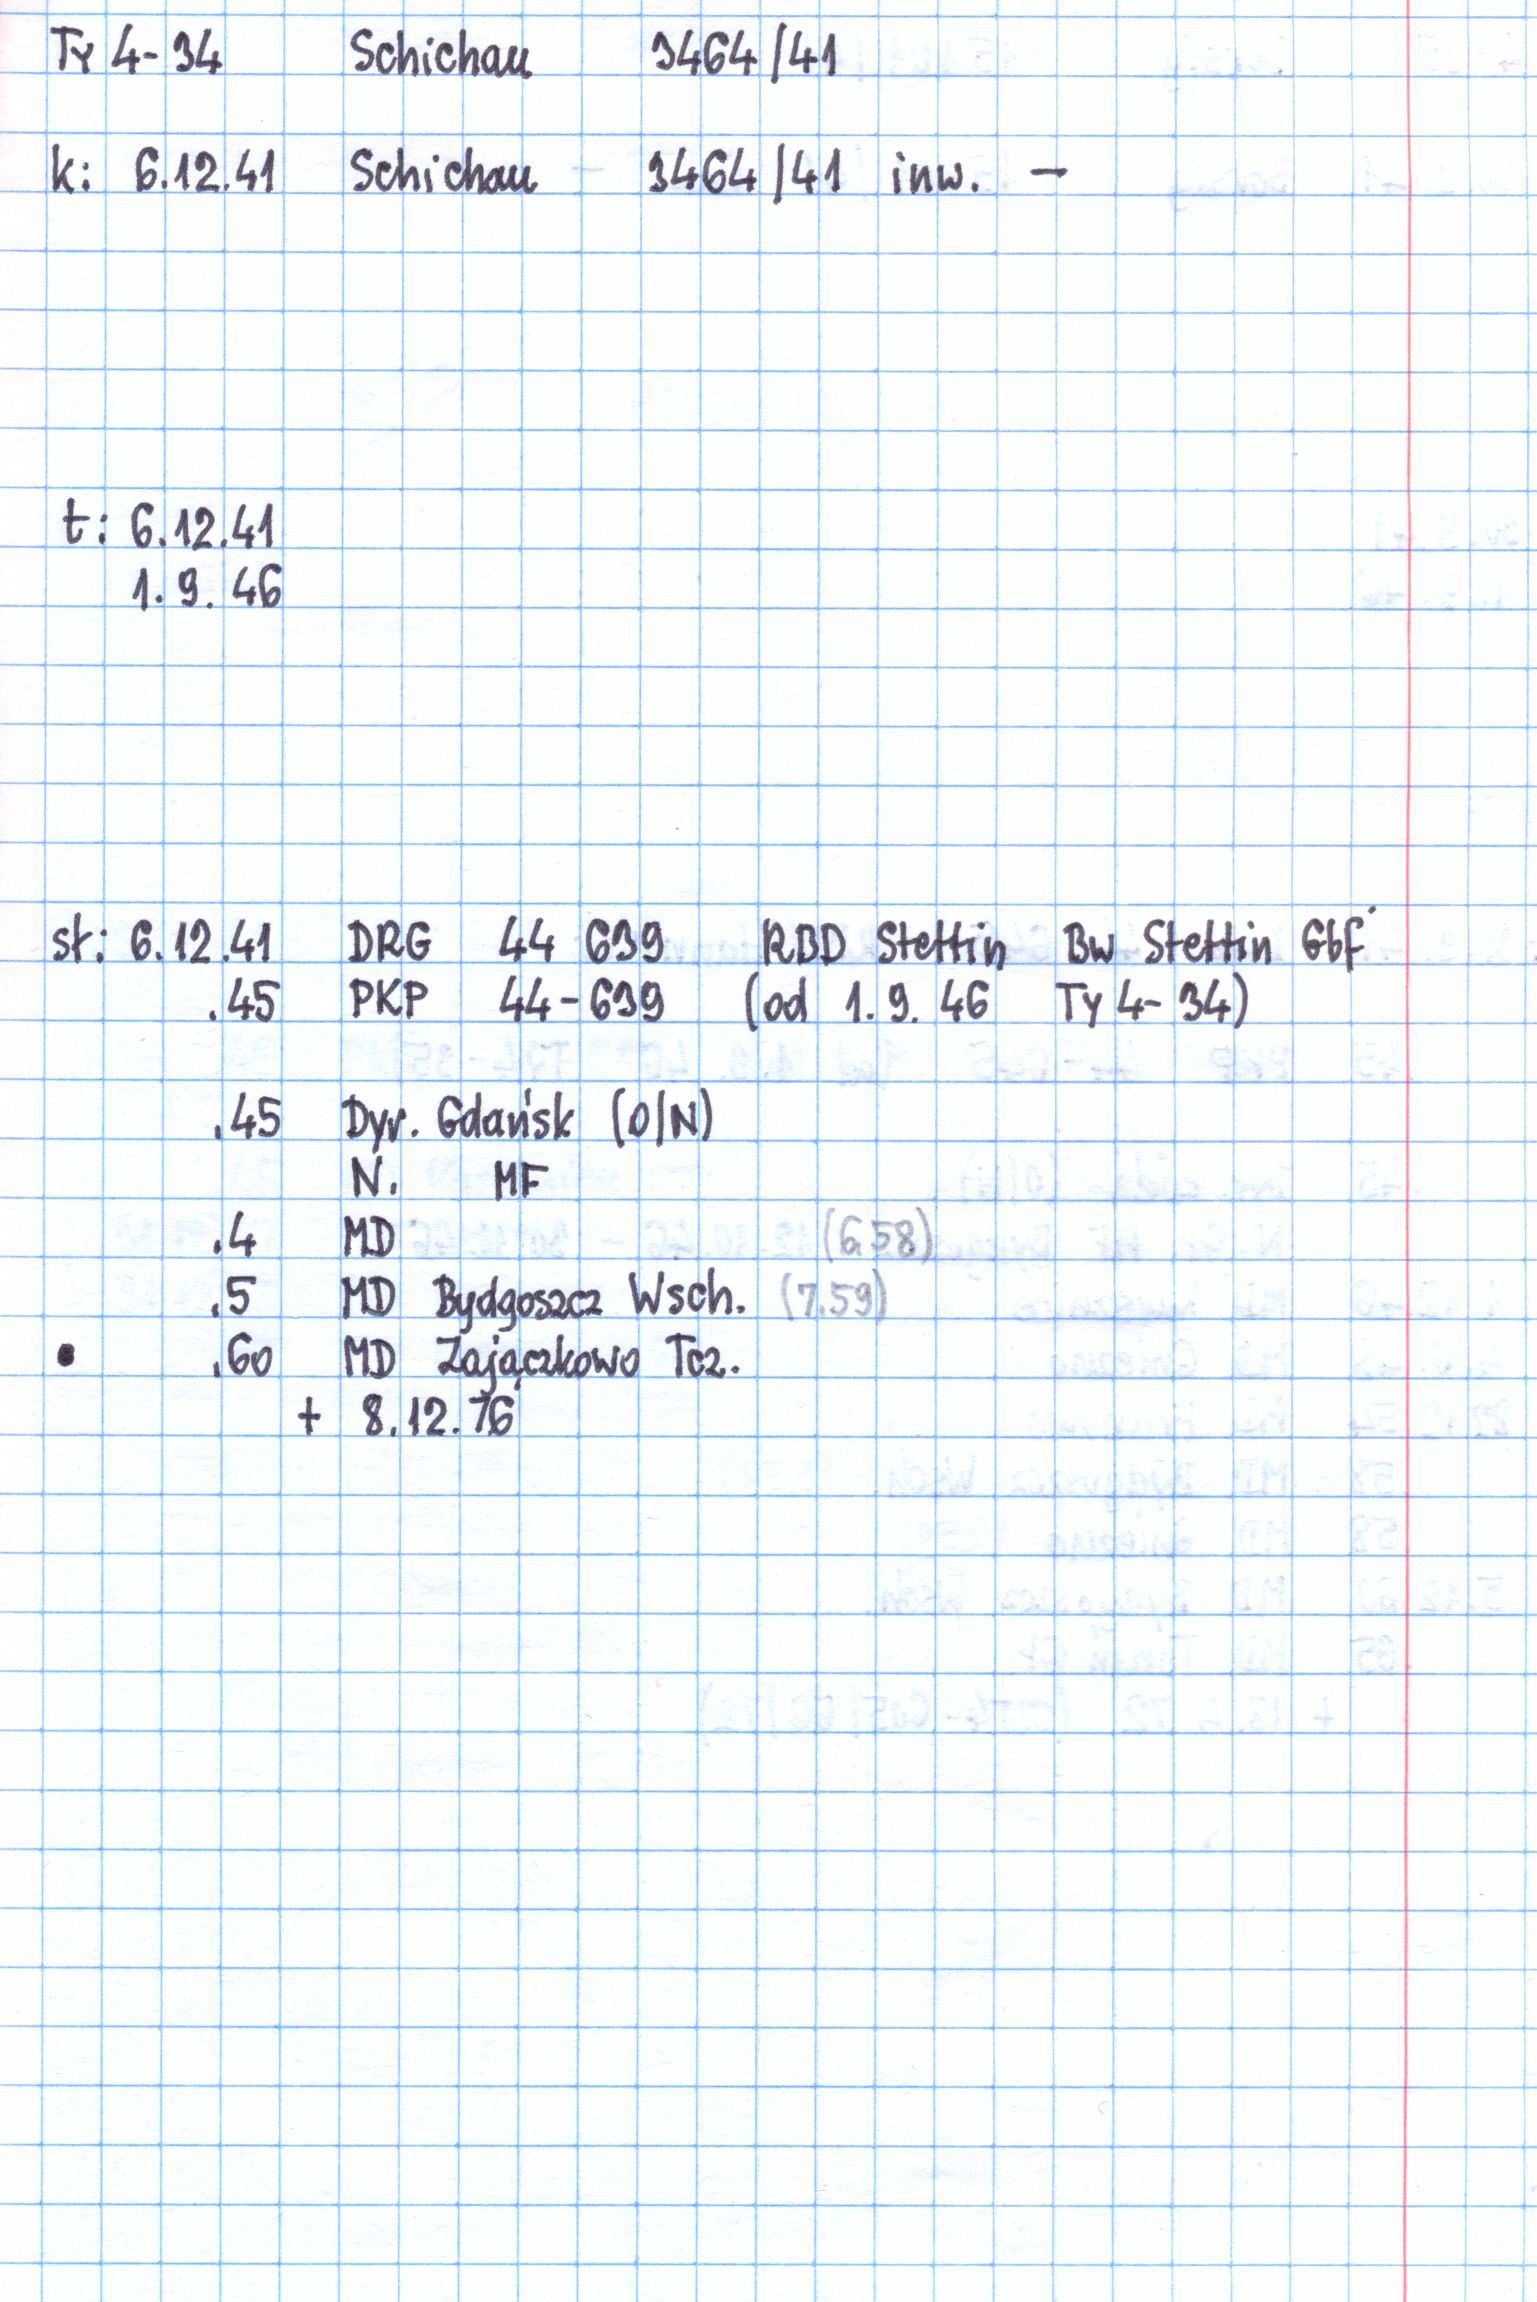 Ty 4-34 Schichau 3464/41
k: 6.12.41 Schichau - 3464/41 inw. -
t: 6.12.41
1.9.46
st: 6.12.41 DRG 44 639 RBD Stettin Bw Stettin Gbf
.45 PKP 44-639 (od 1.9.46 Ty 4-34)
.45 Dyr. Gdańsk (O/N)
N. MF
.4 MD (6.58)
.5 MD Bydgoszcz Wsch. (7.59)
• .60 MD Zajączkowo Tcz.
+ 8.12.76